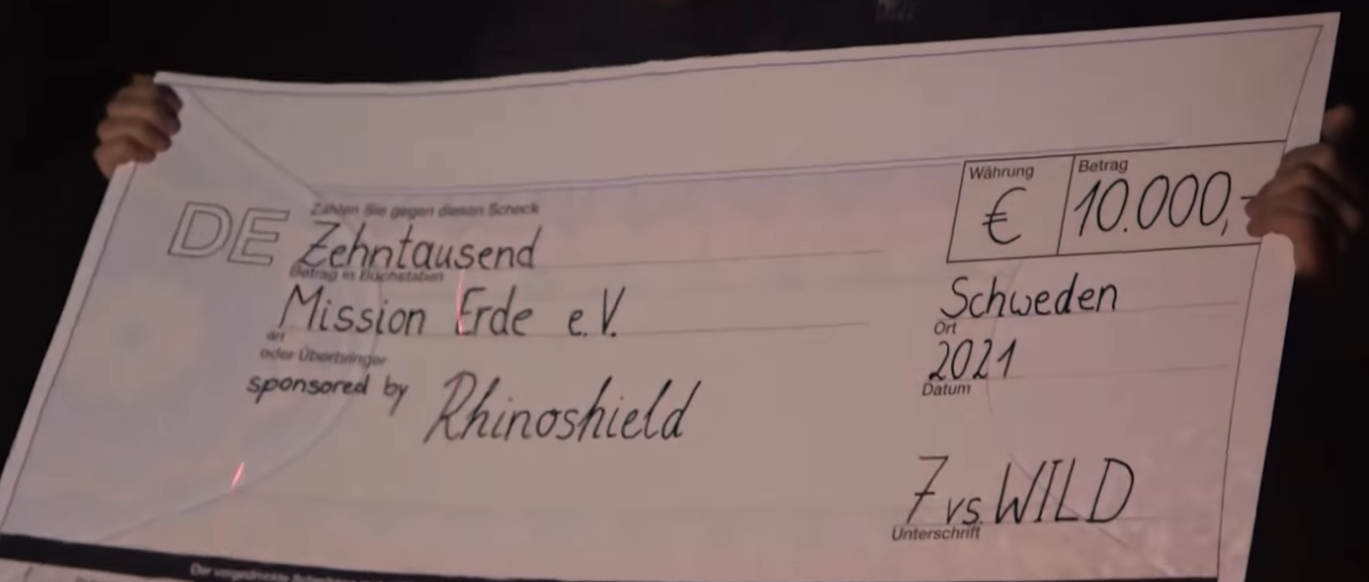 Währung
Betrag
€
10.000,-
DE
Zahlen Sie gegen diesen Scheck
Zehntausend
Betrag in Buchstaben
Mission Erde e.V.
an
oder Überbringer
sponsored by Rhinoshield
Schweden
Ort
2021
Datum
7 vs. WILD
Unterschrift